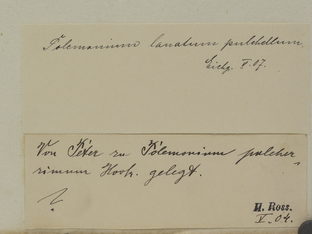 Polemonium lanatum pulchellum,
V. 07.
Von Peter zu Polemonium pulcher-
rimum Hook. gelegt.
?
H. Ross.
V. 04.